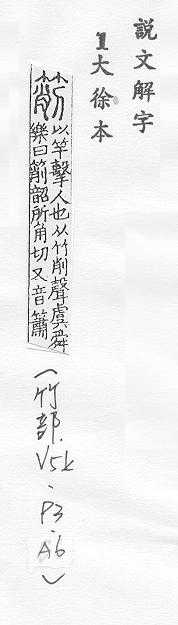 說文解字
1大徐本
箾
以竿擊人也从竹削聲虞舜
樂曰箾韶所角切又音簫
(竹部.
V5上
.P3
.A6)